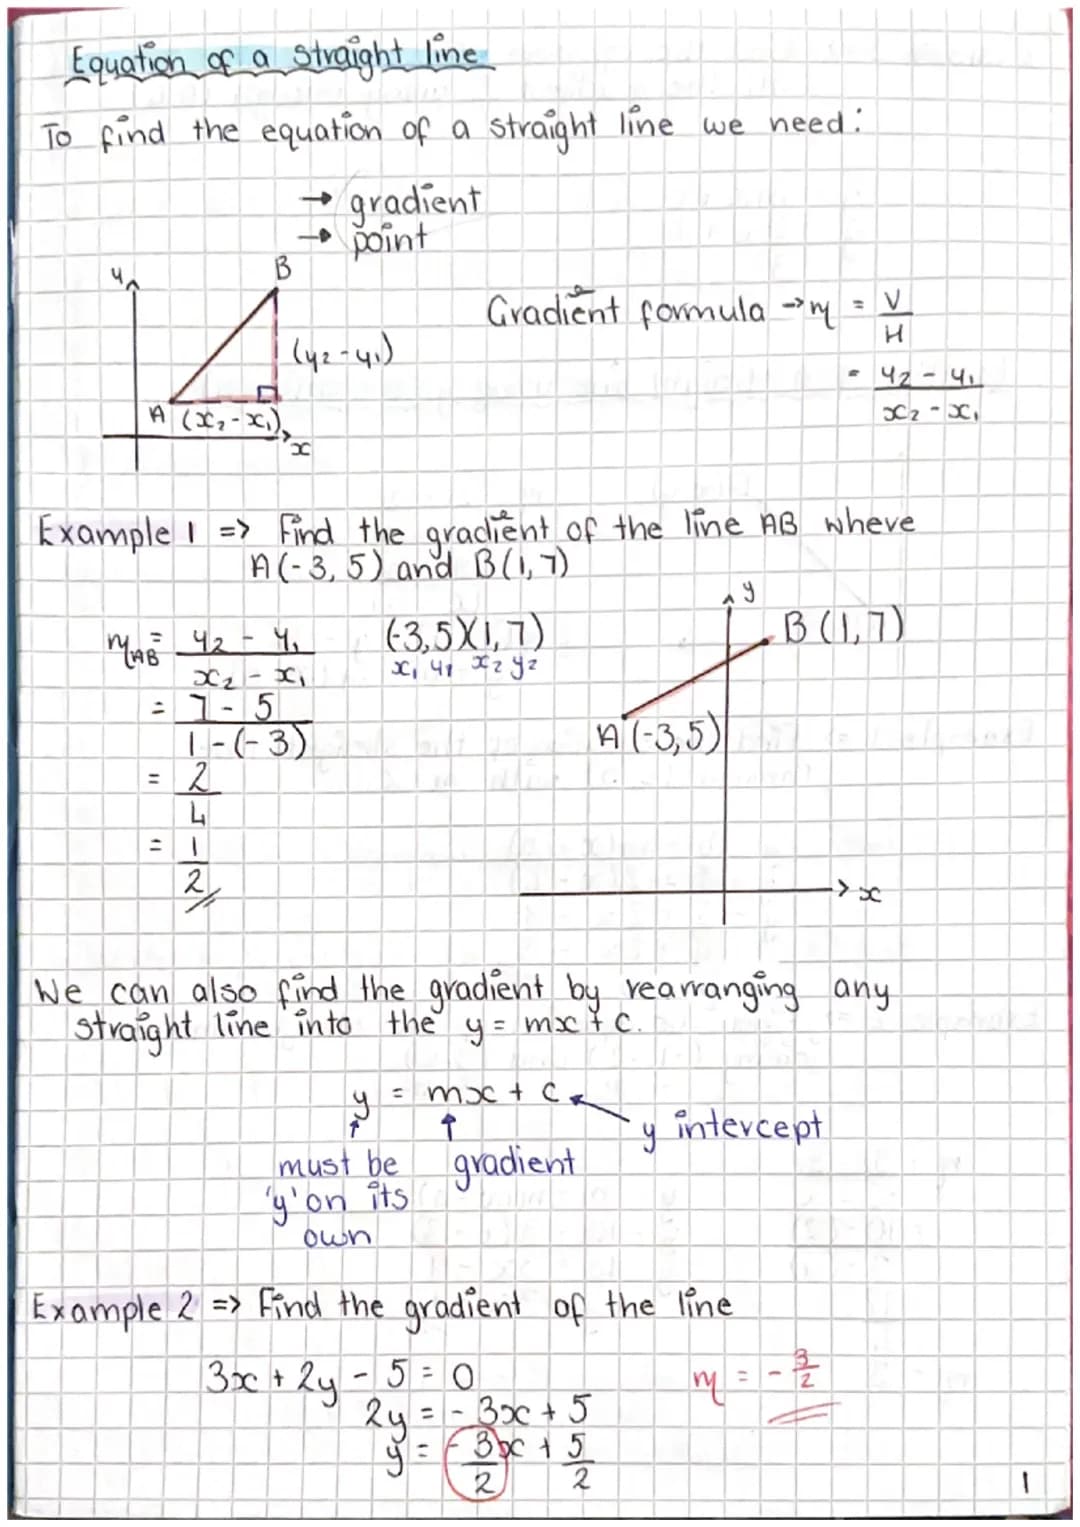 Equation of a straight line
To find the equation of a straight line we need:
→ gradient
→ point
y
B
(y₂-y₁)
A (x₂-x₁)
x
Gradient formula → m = V/H
= (y₂ - y₁)/(x₂ - x₁)
Example 1 => Find the gradient of the line AB where
A(-3, 5) and B(1, 7)
m_AB = (y₂ - y₁)/(x₂ - x₁)
(-3,5)(1,7)
x₁ y₁ x₂ y₂
= (7 - 5)/(1 - (-3))
= 2/4
= 1/2
y
B (1,7)
A (-3,5)
x
We can also find the gradient by rearranging any
straight line into the y = mx + c.
y = mx + c
y intercept
must be gradient
'y' on its
own
Example 2 => Find the gradient of the line
3x + 2y - 5 = 0
m = -3/2
2y = - 3x + 5
y = -3/2x + 5/2
1